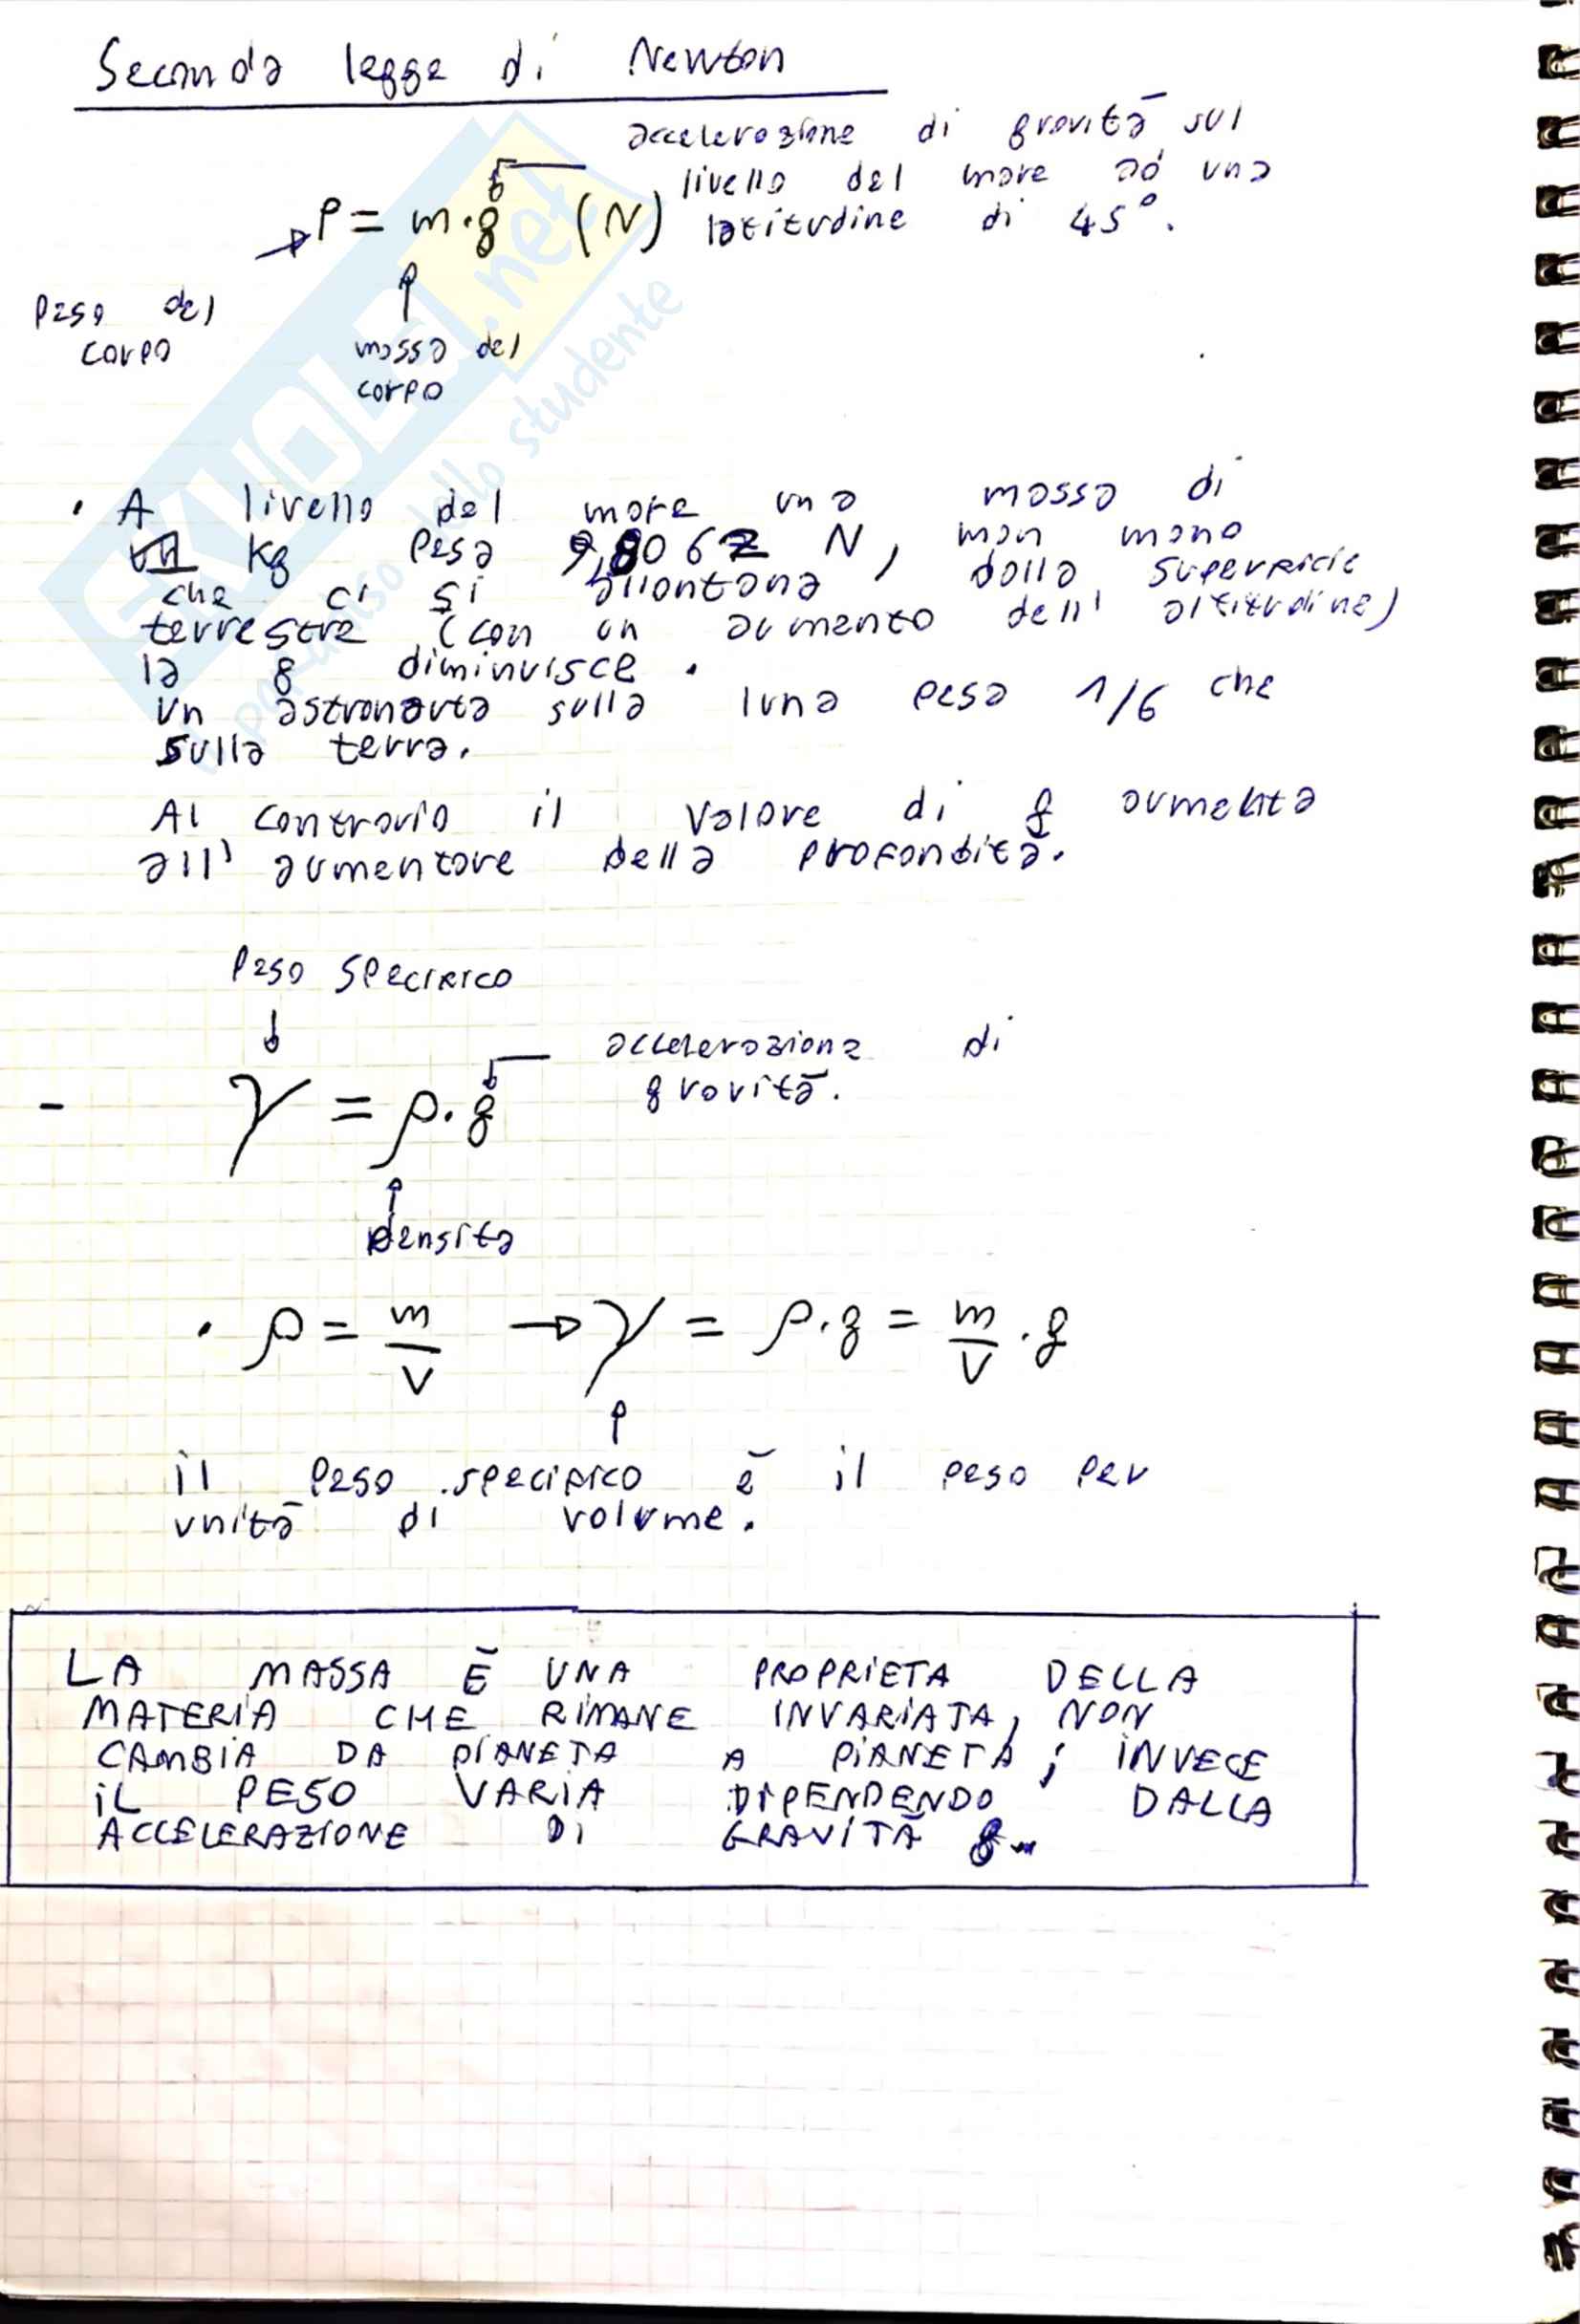 Seconda legge di Newton
accelerazione di gravità sul
livello del mare ad una
latitudine di 45°.
P = m·g (N)
Peso del
corpo
massa del
corpo
SKUOLA.net
paradiso dello studente
· A livello del mare una massa di
un kg pesa 9,8062 N, man mano
che ci si allontana dalla superficie
terrestre (con un aumento dell'altitudine)
la g diminuisce.
Un astronauta sulla luna pesa 1/6 che
sulla terra.
Al contrario il valore di g aumenta
all'aumentare della profondità.
Peso specifico
accelerazione di
gravità.
- γ = ρ·g
densità
· ρ = m/V → γ = ρ·g = m/V · g
il peso specifico è il peso per
unità di volume.
LA MASSA È UNA PROPRIETA DELLA
MATERIA CHE RIMANE INVARIATA, NON
CAMBIA DA PIANETA A PIANETA; INVECE
IL PESO VARIA DIPENDENDO DALLA
ACCELERAZIONE DI GRAVITÀ g